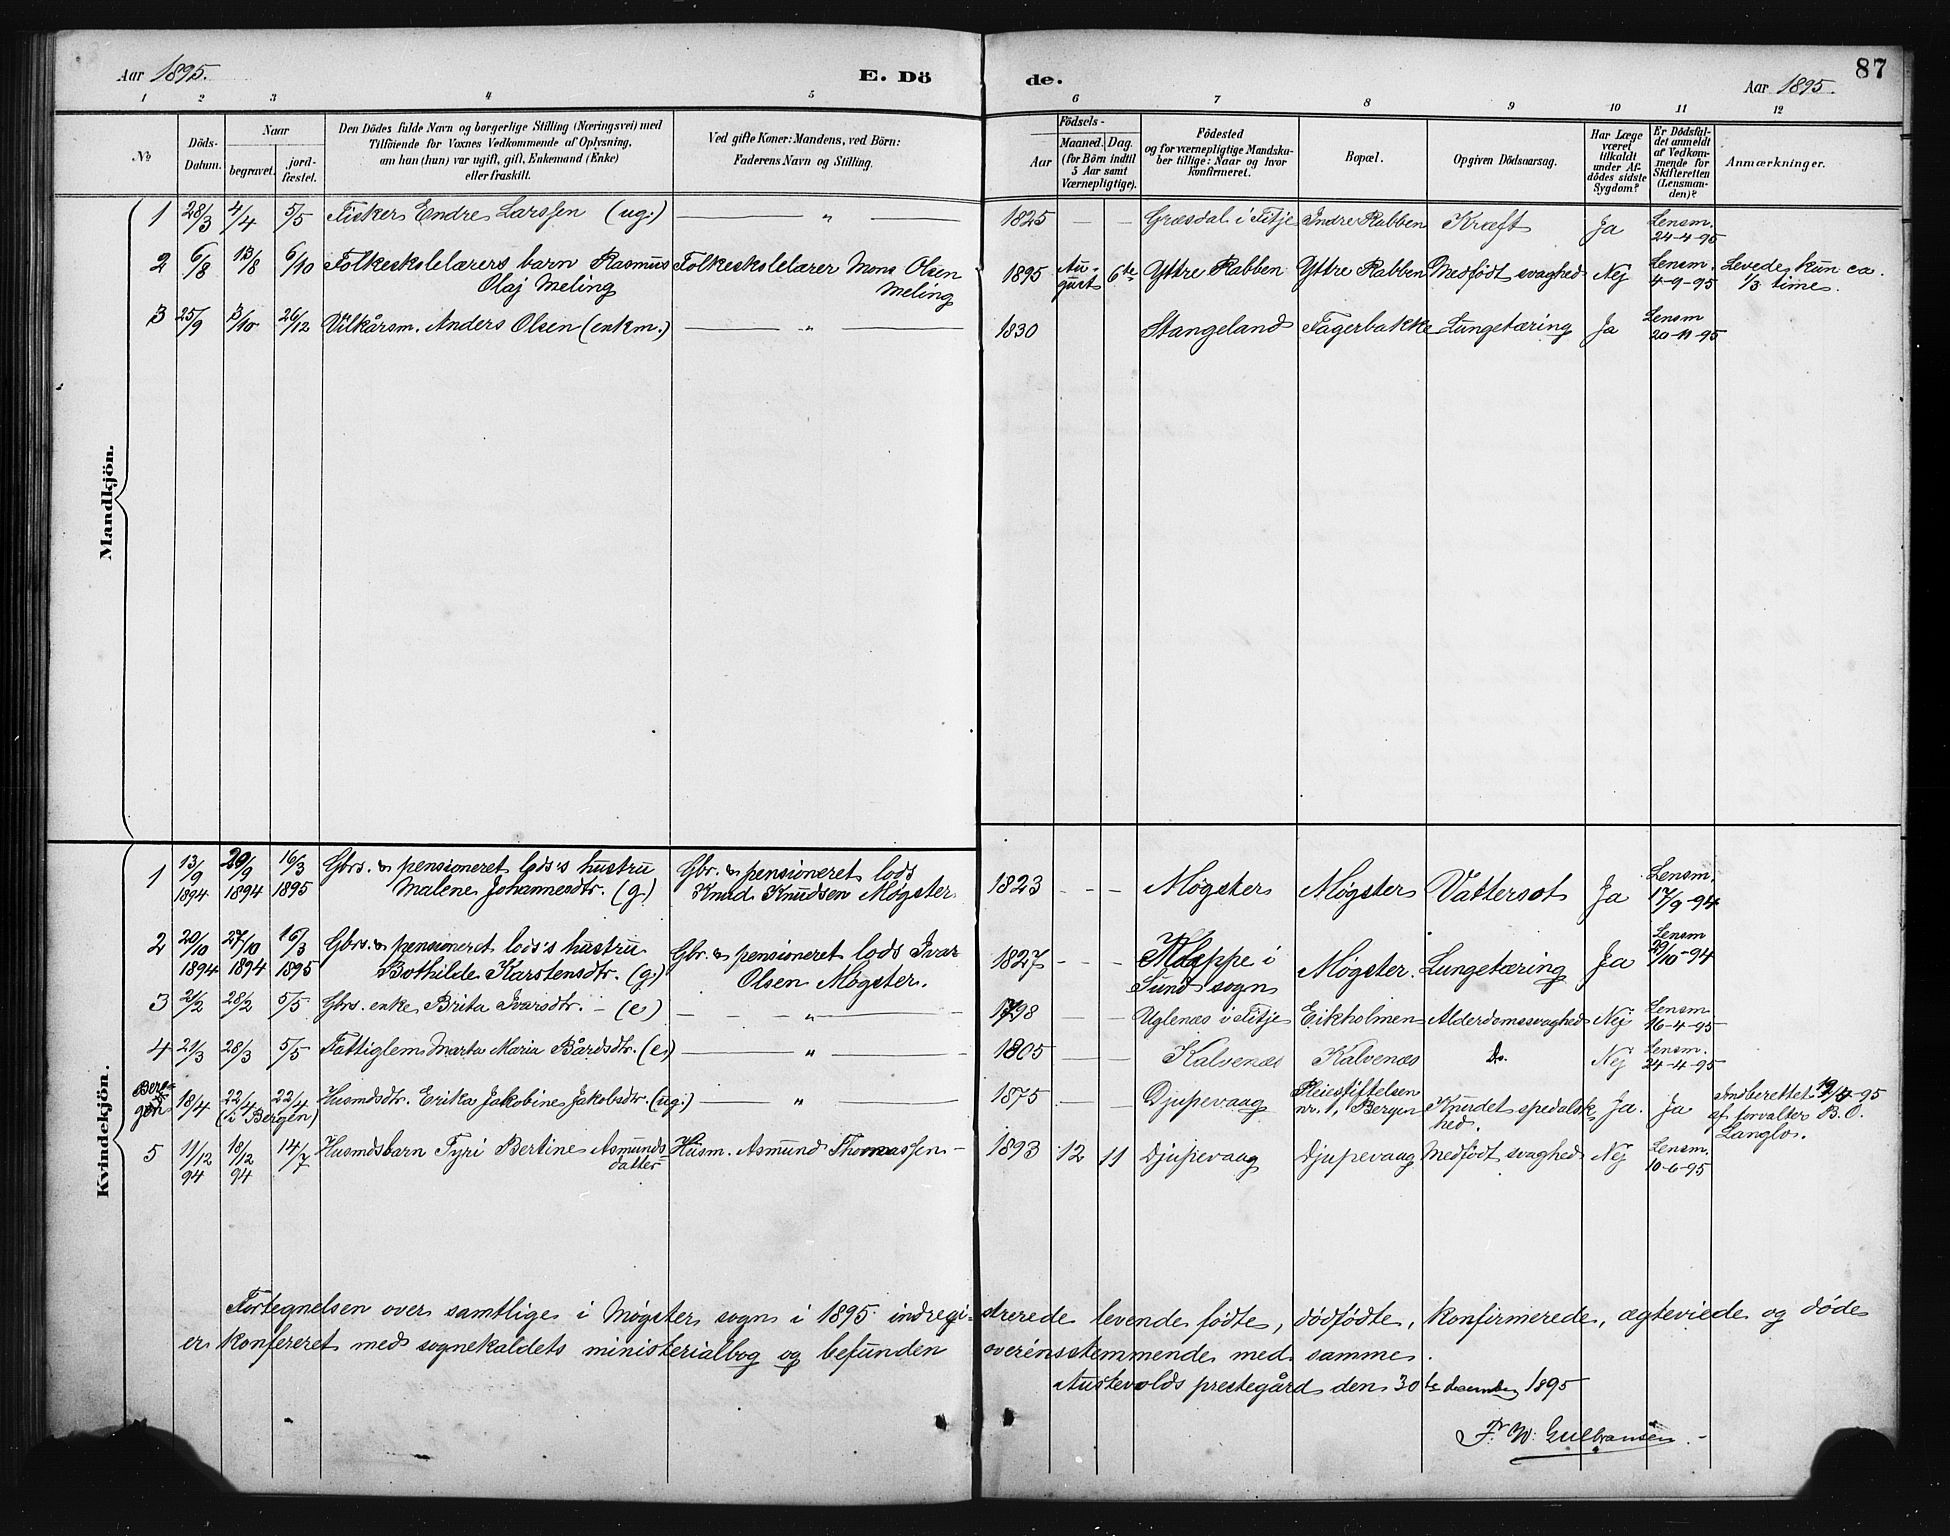 Aar 1895. E. Dö de. Aar 1895. 87
1 2 3 4 5 6 7 8 9 10 11 12
No Döds-Datum. Naar begravet. jord-fæstet. Den Dödes fulde Navn og borgerlige Stilling (Næringsvei) med Tilföiende for Voxnes Vedkommende af Oplysning, om han (hun) var ugift, gift, Enkemand (Enke) eller fraskilt. Ved gifte Koner: Mandens, ved Börn: Faderens Navn og Stilling. Födsels- Aar Maaned. Dag. (for Börn indtil 5 Aar samt Værnepligtige). Födested og for værnepligtige Mandska-ber tillige: Naar og hvor konfirmeret. Bopæl. Opgiven Dödsaarsag. Har Læge været tilkaldt under Af-dödes sidste Sygdom? Er Dödsfal-det anmeldt af Vedkom-mende for Skifteretten (Lensman-den)? Anmærkninger.
Mandkjön.
1 28/3 4/4 5/5 Fisker Endre Larssen (ug.) — " — 1825 — — Græsdal i Fitje Indre Rabben Kræft Ja Lensm. 24-4-95
2 6/8 13/8 6/10 Folkeskolelærers barn Rasmus Folkeskolelærer Mons Olsen 1895 Au- 6te Yttre Rabben Yttre Rabben Medfödt svaghed Nej Lensm. Levede kun ca.
Olaj Meling Meling gust 4-9-95 1/3 time.
3 25/9 3/10 26/12 Vilkårsm. Anders Olsen (enkm.) — " — 1830 Stangeland Fagerbakke Lungetæring Ja Lensm 20-11-95
Kvindekjön.
1 13/9 1894 29/9 1894 16/3 1895 Gbrs. & pensioneret lods's hustru Gbr. & pensioneret lods
Malene Johannesdtr. (g) Knud Knudsen Møgster 1823 - - - Møgster Møgster Vattersot Ja Lensm. 17/9-94
2 20/10 1894 27/10 1894 16/3 1895 Gbrs. & pensioneret lods's hustru Gbr. & pensioneret lods Ivar
Bothilde Karstensdtr. (g) Olsen Møgster. 1827 - - - Kleppe i Sund sogn Møgster. Lungetæring Ja Lensm 29/10-94
3 21/2 28/2 5/5 Gbrs. enke Brita Ivarsdtr. - (e) - - - " - 1798 — — Uglenæs i Fitje Eikholmen Alderdomssvaghed Nej Lensm 16-4-95
4 21/3 28/3 5/5 Fattiglem Marta Maria Bårdsdtr. (e) — " — 1805 — — Kalvenæs Kalvenæs do. Nej Lensm. 24-4-95
Ber-gen 18/4 22/4 22/4 (i Bergen) Husmdsdtr. Erika Jakobine Jakobsdtr. (ug.) — " — 1875 — — Djupevaag Pleiestiftelsen nr. 1, Bergen Knudet spedalsk-hed. Ja. Ja Indberettet 19/4-95 af forvalter B. O. Langlo.
5 11/12 94 18/12 94 14/7 Husmdsbarn Tyri Bertine Asmunds-datter Husm. Asmund Thomassen - 1893 12 11 Djupevaag Djupevaag Medfödt svaghed Nej Lensm. 10-6-95
Fortegnelsen over samtlige i Møgster sogn i 1895 indregi-strerede levende fødte, dødfødte, konfirmerede, ægteviede og døde
er konfereret med sognekaldets ministerialbog og befunden overensstemmende med samme.
Austevolds prestegård den 30te december 1895
Fr. W. Gulbransen.